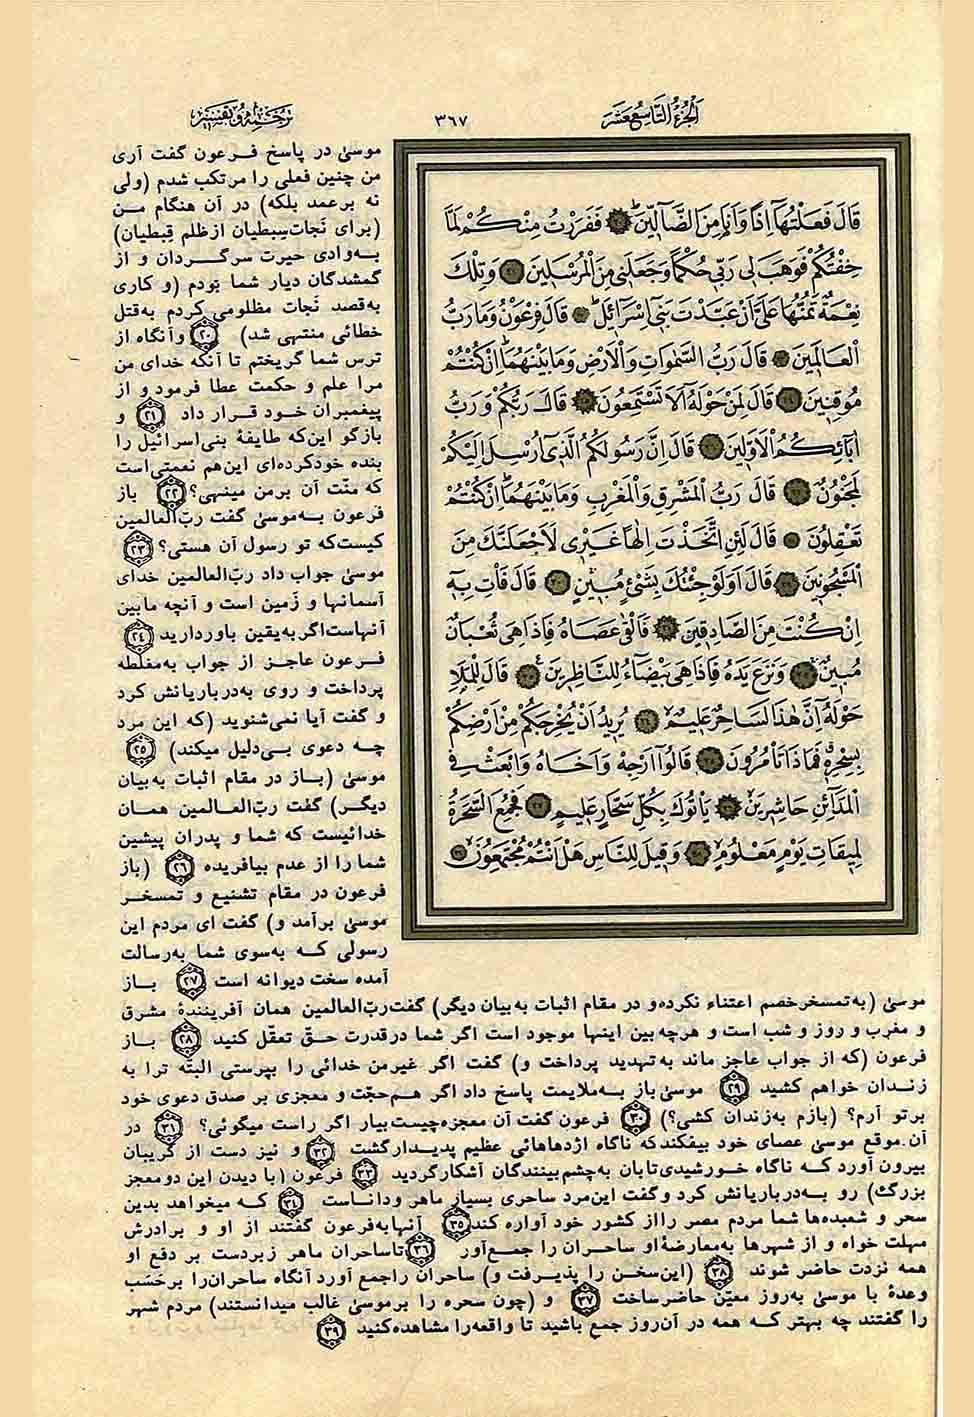 الجزء التاسع عشر
۳۶۷
ترجمه و تفسیر
قَالَ فَعَلْتُهَآ اِذًا وَاَنَا۬ مِنَ الضَّآلّ۪ينَۜ ﴿۲۰﴾ فَفَرَرْتُ مِنْكُمْ لَمَّا
خِفْتُكُمْ فَوَهَبَ ل۪ي رَبّ۪ي حُكْمًا وَجَعَلَن۪ي مِنَ الْمُرْسَل۪ينَ ﴿۲۱﴾ وَتِلْكَ
نِعْمَةٌ تَمُنُّهَا عَلَيَّ اَنْ عَبَّدْتَ بَن۪ٓي اِسْرَآئ۪لَۜ ﴿۲۲﴾ قَالَ فِرْعَوْنُ وَمَا رَبُّ
الْعَالَم۪ينَ ﴿۲۳﴾ قَالَ رَبُّ السَّمٰوَاتِ وَالْاَرْضِ وَمَا بَيْنَهُمَاۜ اِنْ كُنْتُمْ
مُوقِن۪ينَ ﴿۲۴﴾ قَالَ لِمَنْ حَوْلَهُٓ اَلَا تَسْتَمِعُونَ ﴿۲۵﴾ قَالَ رَبُّكُمْ وَرَبُّ
اٰبَآئِكُمُ الْاَوَّل۪ينَ ﴿۲۶﴾ قَالَ اِنَّ رَسُولَكُمُ الَّذ۪ٓي اُرْسِلَ اِلَيْكُمْ
لَمَجْنُونٌ ﴿۲۷﴾ قَالَ رَبُّ الْمَشْرِقِ وَالْمَغْرِبِ وَمَا بَيْنَهُمَاۜ اِنْ كُنْتُمْ
تَعْقِلُونَ ﴿۲۸﴾ قَالَ لَئِنِ اتَّخَذْتَ اِلٰهًا غَيْر۪ي لَاَجْعَلَنَّكَ مِنَ
الْمَسْجُون۪ينَ ﴿۲۹﴾ قَالَ اَوَلَوْ جِئْتُكَ بِشَيْءٍ مُب۪ينٍ ﴿۳۰﴾ قَالَ فَاْتِ بِه۪ٓ
اِنْ كُنْتَ مِنَ الصَّادِق۪ينَ ﴿۳۱﴾ فَاَلْقٰى عَصَاهُ فَاِذَا هِيَ ثُعْبَانٌ
مُب۪ينٌۚ ﴿۳۲﴾ وَنَزَعَ يَدَهُ فَاِذَا هِيَ بَيْضَآءُ لِلنَّاظِر۪ينَ ﴿۳۳﴾ قَالَ لِلْمَلَاِ
حَوْلَهُٓ اِنَّ هٰذَا لَسَاحِرٌ عَل۪يمٌ ﴿۳۴﴾ يُر۪يدُ اَنْ يُخْرِجَكُمْ مِنْ اَرْضِكُمْ
بِسِحْرِه۪ فَمَاذَا تَأْمُرُونَ ﴿۳۵﴾ قَالُٓوا اَرْجِهْ وَاَخَاهُ وَابْعَثْ فِي
الْمَدَآئِنِ حَاشِر۪ينَ ﴿۳۶﴾ يَأْتُوكَ بِكُلِّ سَحَّارٍ عَل۪يمٍ ﴿۳۷﴾ فَجُمِعَ السَّحَرَةُ
لِم۪يقَاتِ يَوْمٍ مَعْلُومٍ ﴿۳۸﴾ وَق۪يلَ لِلنَّاسِ هَلْ اَنْتُمْ مُجْتَمِعُونَ ﴿۳۹﴾
موسیٰ در پاسخ فرعون گفت آری
من چنین فعلی را مرتکب شدم (ولی
نه برعمد بلکه) در آن هنگام من
(برای نَجات سِبطیان از ظلم قِبطیان)
به‌وادی حیرت سرگردان و از
گمشدگان دیار شما بودم (و کاری
به‌قصد نَجات مظلومی کردم به‌قتل
خطائی منتهی شد) ﴿۲۰﴾ وآنگاه از
ترس شما گریختم تا آنکه خدای من
مرا علم و حکمت عطا فرمود و از
پیغمبران خود قرار داد ﴿۲۱﴾ و
بازگو این‌که طایفهٔ بنی‌اسرائیل را
بنده خودکرده‌ای این‌هم نعمتی‌است
که منّت آن برمن مینهی؟ ﴿۲۲﴾ باز
فرعون به‌موسیٰ گفت ربّ‌العالمین
کیست‌که تو رسول آن هستی؟ ﴿۲۳﴾
موسیٰ جواب داد ربّ‌العالمین خدای
آسمانها و زَمین است و آنچه مابین
آنهاست‌اگر به‌یقین باوردارید ﴿۲۴﴾
فرعون عاجز از جواب به‌مغلطه
پرداخت و روی به‌درباریانش کرد
و گفت آیا نمی‌شنوید (که این مرد
چه دعوی بی‌دلیل میکند) ﴿۲۵﴾
موسیٰ (باز در مقام اثبات به‌بیان
دیگر) گفت ربّ‌العالمین همان
خدائیست که شما و پدران پیشین
شما را از عدم بیافریده ﴿۲۶﴾ (باز
فرعون در مقام تشنیع و تمسخر
موسیٰ برآمد و) گفت ای مردم این
رسولی که به‌سوی شما به‌رسالت
آمده سخت دیوانه است ﴿۲۷﴾ باز
موسیٰ (به‌تمسخرخصم اعتناء نکرده‌و در مقام اثبات به‌بیان دیگر) گفت‌ربّ‌العالمین همان آفرینندهٔ مشرق
و مغرب و روز و شب است و هرچه بین اینها موجود است اگر شما درقدرت حقّ تعقّل کنید ﴿۲۸﴾ باز
فرعون (که از جواب عاجز ماند به‌تهدید پرداخت و) گفت اگر غیرمن خدائی را بپرستی البتّه ترا به
زندان خواهم کشید ﴿۲۹﴾ موسیٰ باز به‌ملایمت پاسخ داد اگر هم‌حجّت و معجزی بر صدق دعوی خود
برتو آرم؟ (بازم به‌زندان کشی؟) ﴿۳۰﴾ فرعون گفت آن معجزه‌چیست‌بیار اگر راست میگوئی؟ ﴿۳۱﴾ در
آن موقع موسیٰ عصای خود بیفکندکه ناگاه اژدهائی عظیم پدیدارگشت ﴿۳۲﴾ و نیز دست از گریبان
بیرون آورد که ناگاه خورشیدی‌تابان به‌چشم‌بینندگان آشکارگردید ﴿۳۳﴾ فرعون (با دیدن این دومعجز
بزرگ) رو به‌درباریانش کرد و گفت این‌مرد ساحری بسیار ماهر وداناست ﴿۳۴﴾ که میخواهد بدین
سحر و شعبده‌ها شما مردم مصر رااز کشور خود آواره کند ﴿۳۵﴾ آنهابه‌فرعون گفتند از او و برادرش
مهلت خواه و از شهرها به‌معارضهٔ‌او ساحران را جمع‌آور ﴿۳۶﴾ تاساحران ماهر زبردست بر دفع او
همه نزدت حاضر شوند ﴿۳۸﴾ (این‌سخن را پذیرفت و) ساحران راجمع آورد آنگاه ساحران‌را برحَسَب
وعدهٔ با موسیٰ به‌روز معیّن حاضرساخت ﴿۳۷﴾ و (چون سحره را برموسیٰ غالب میدانستند) مردم شهر
را گفتند چه بهتر که همه در آن‌روز جمع باشید تا واقعه‌را مشاهده‌کنید ﴿۳۹﴾